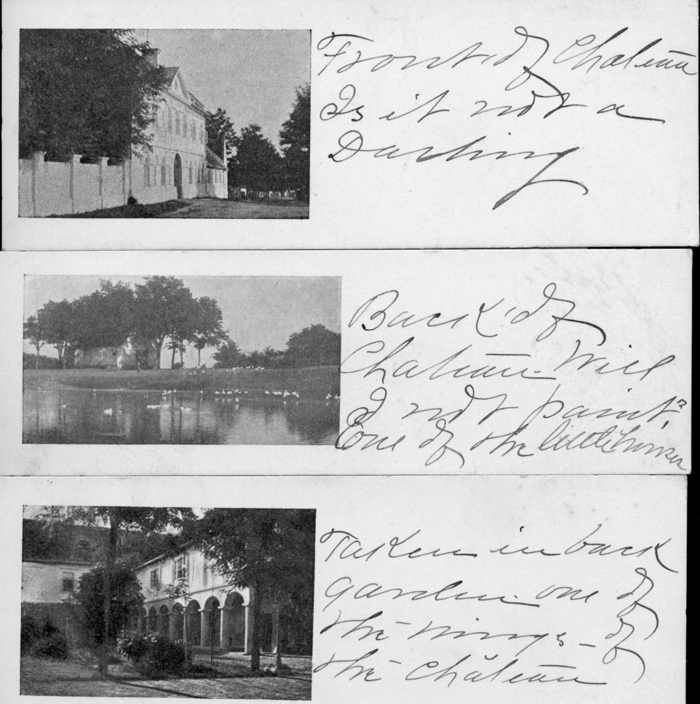 Front of Chateau
Is it not a
Darling
Back of
Chateau. Will
I not paint?
One of the
Taken in back
garden one of
the wings - of
the Chateau